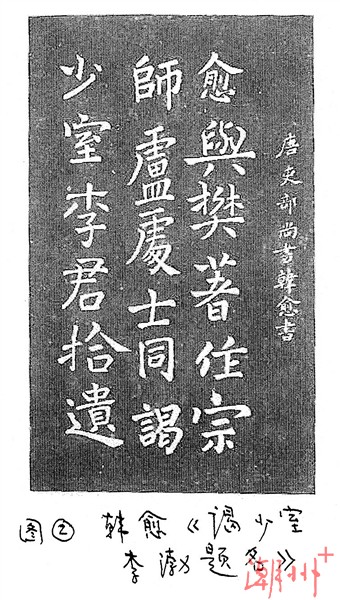 唐吏部尚書韓愈書
愈與樊著作宗
師盧處士同謁
少室李君拾遺
图② 韩愈《谒少室
李渤题名》
潮州+